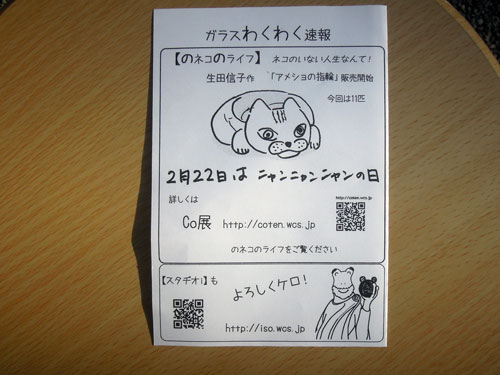 ガラスわくわく速報
【のネコのライフ】 ネコのいない人生なんて!
生田信子作 「アメショの指輪」販売開始
今回は11匹
2月22日は ニャンニャンニャンの日
詳しくは
http://coten.wcs.jp
Co展 http://coten.wcs.jp
のネコのライフをご覧ください
【スタヂオI】も
よろしくケロ!
http://iso.wcs.jp